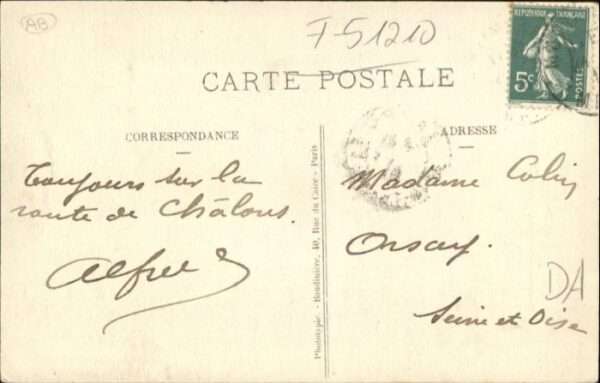 AB
F-51210
RÉPUBLIQUE FRANÇAISE
5c
CARTE POSTALE
CORRESPONDANCE
ADRESSE
Toujours sur la
route de Châlons.
Alfred
Phototypie - Baudinière, 40, Rue du Caire - Paris
Madame Colin
Orsay.
Seine et Oise
DA